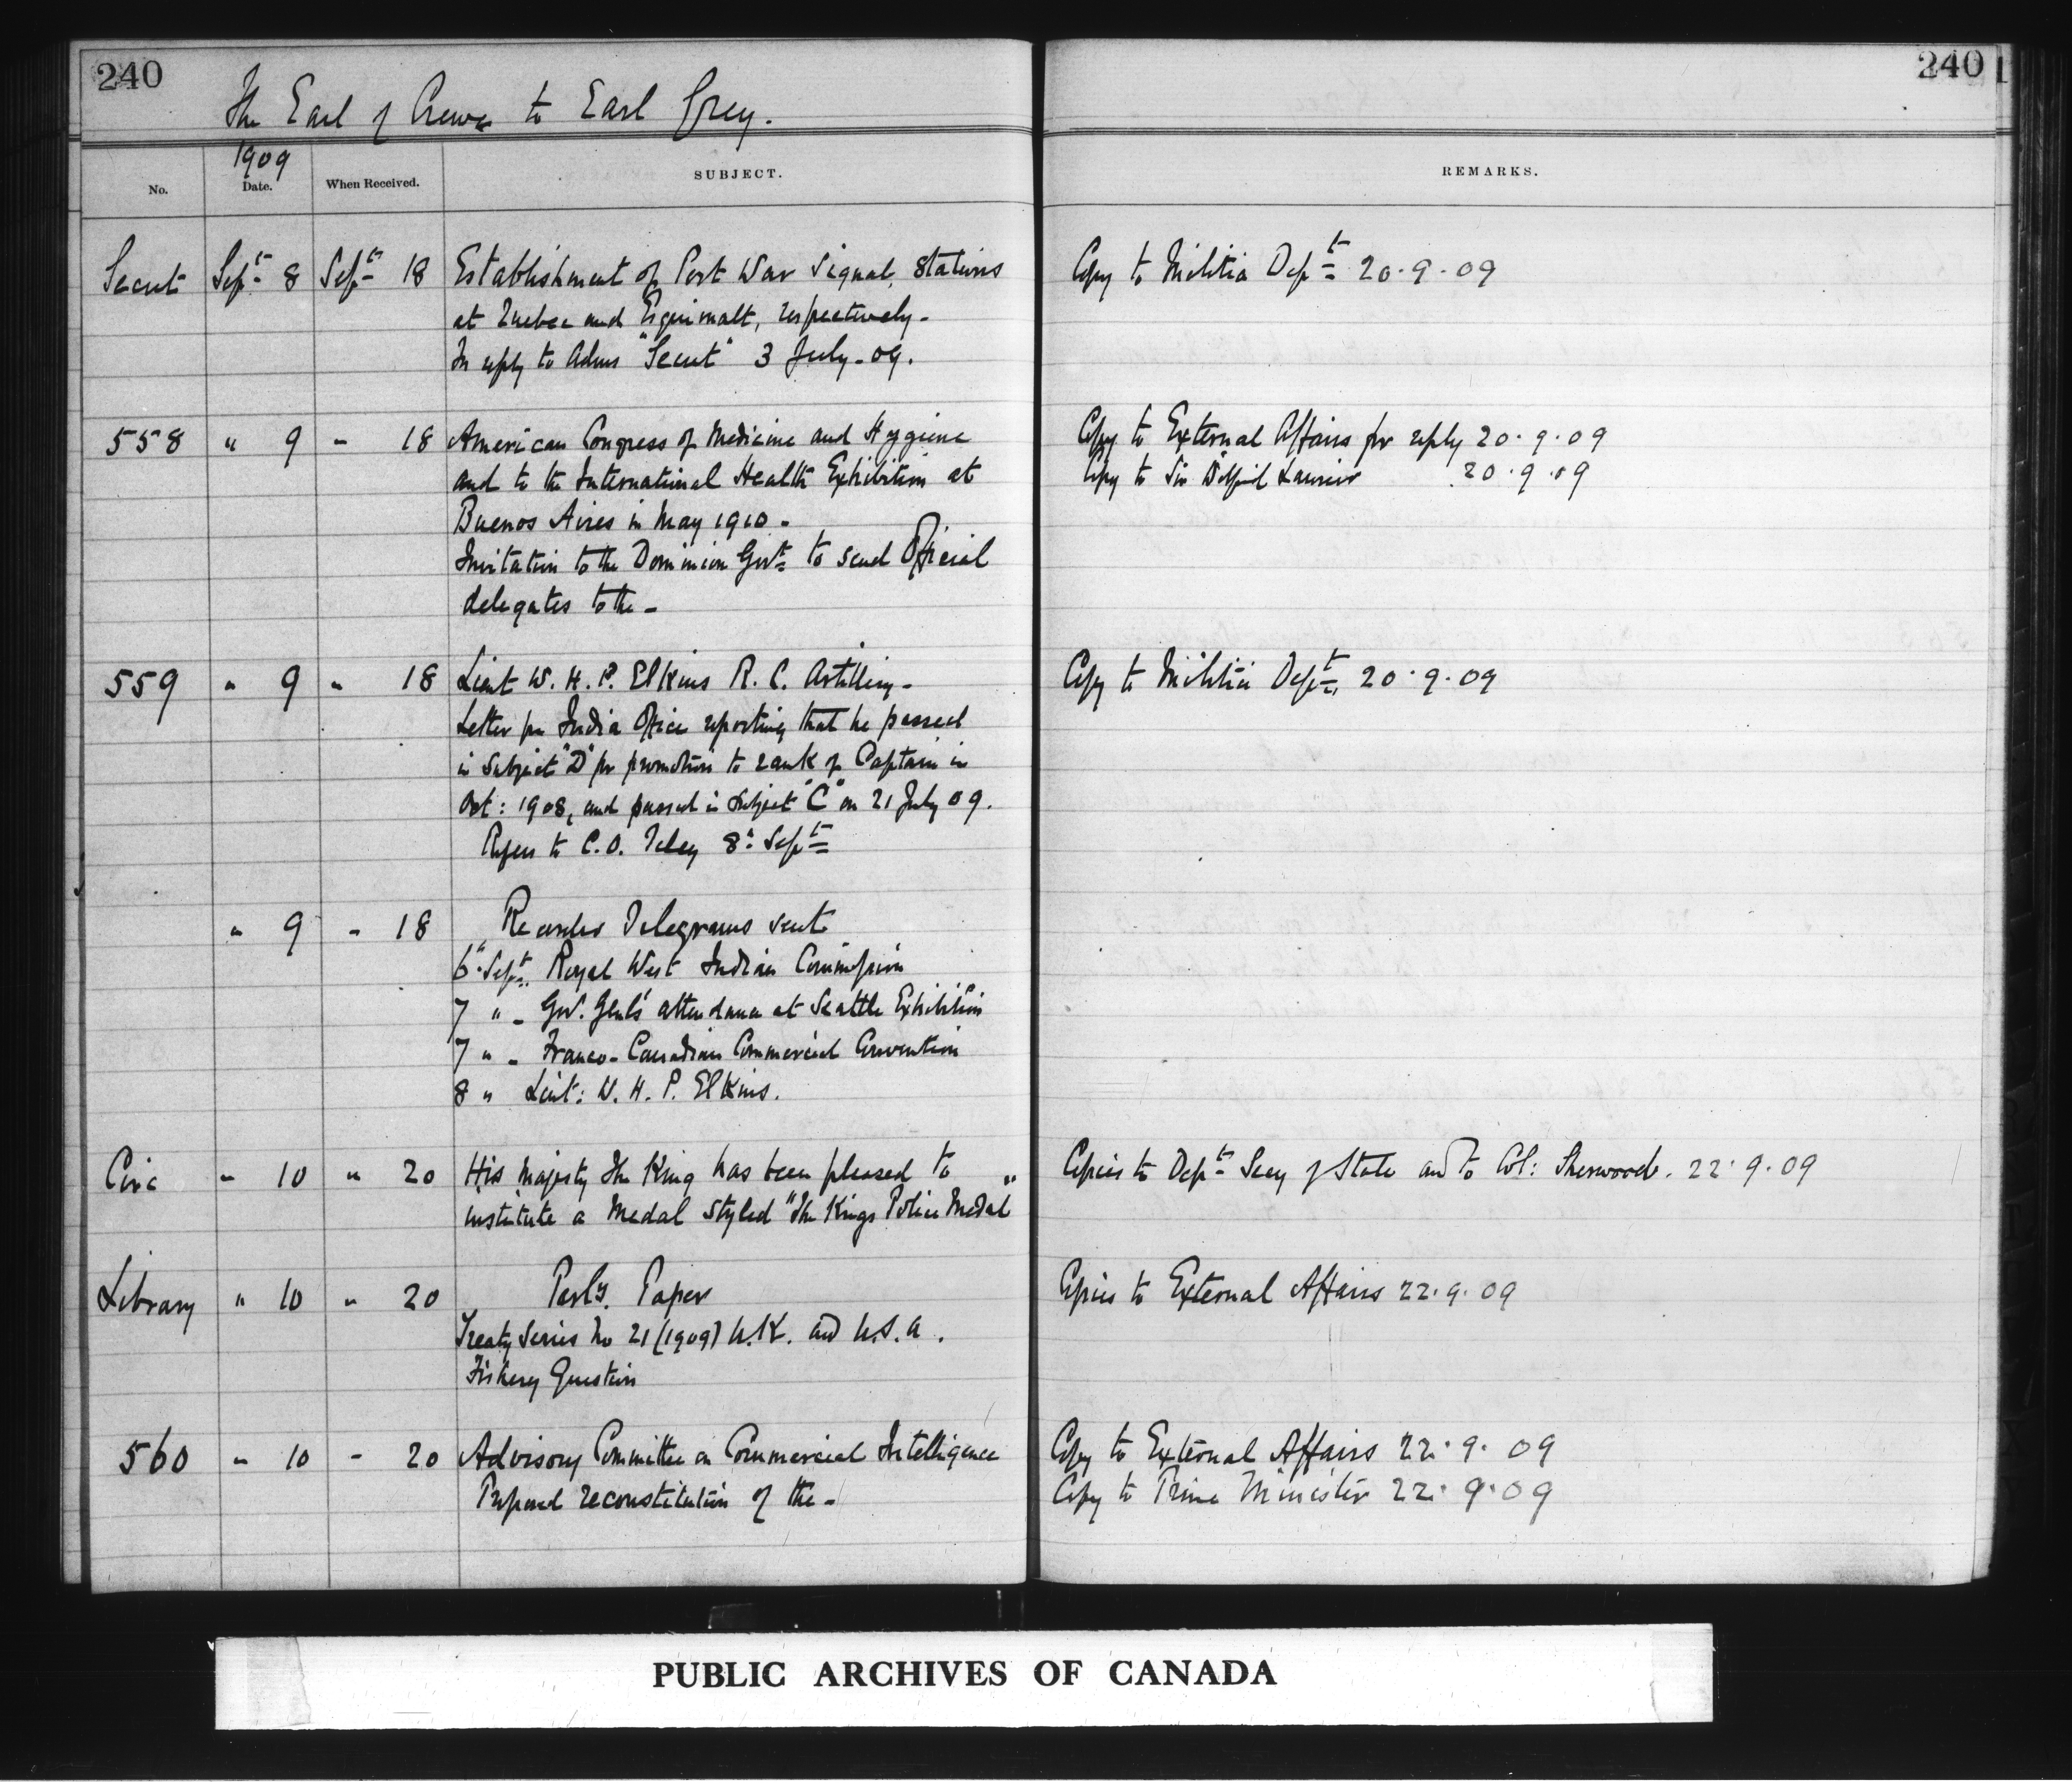 240
240
The Earl of Crewe to Earl Grey.
1909
No. Date. When Received. SUBJECT. REMARKS.
Secret Sept 8 Sept 18 Establishment of Port War Signal Stations Copy to Militia Dept 20.9.09
at Quebec and Esquimalt, respectively -
In reply to Adms "Secret" 3 July - 09.
558 " 9 " 18 American Congress of Medicine and Hygiene Copy to External Affairs for reply 20.9.09
and to the International Health Exhibition at Copy to Sir Wilfrid Laurier 20.9.09
Buenos Aires in May 1910 -
Invitation to the Dominion Govt to send Official
delegates to the -
559 " 9 " 18 Lieut W. H. P. Elkins R. C. Artillery - Copy to Militia Dept. 20.9.09
Letter fm India Office reporting that he passed
in Subject "D" for promotion to rank of Captain in
Oct: 1908, and passed in Subject "C" on 21 July 09.
Refers to C.O. Teleg 8th Sept
" 9 " 18 Records Telegrams sent
6th Sept. Royal West Indian Commission
7 " - Gov. Genl's attendance at Seattle Exhibition
7 " - Franco-Canadian Commercial Convention
8 " Lieut: W. H. P. Elkins.
Circ " 10 " 20 His Majesty The King has been pleased to Copies to Dept Secy of State and to Col: Sherwood. 22.9.09
institute a Medal styled "The Kings Police Medal"
Library " 10 " 20 Parly. Paper Copies to External Affairs 22.9.09
Treaty Series No 21 (1909) U.K. and U.S.A.
Fishery Question
560 " 10 " 20 Advisory Committee on Commercial Intelligence Copy to External Affairs 22.9.09
Proposed reconstitution of the - Copy to Prime Minister 22.9.09
PUBLIC ARCHIVES OF CANADA